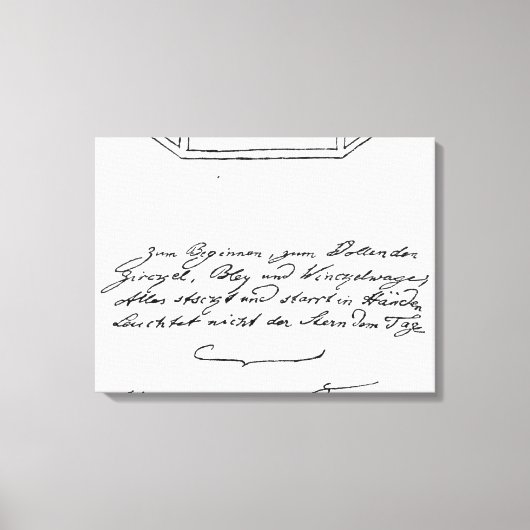 Zum Beginnen, zum Vollenden
Zirczel, Bley und Winczelwage,
Alles stoczt und starrt in Händen
Leuchtet nicht der Stern dem Tage